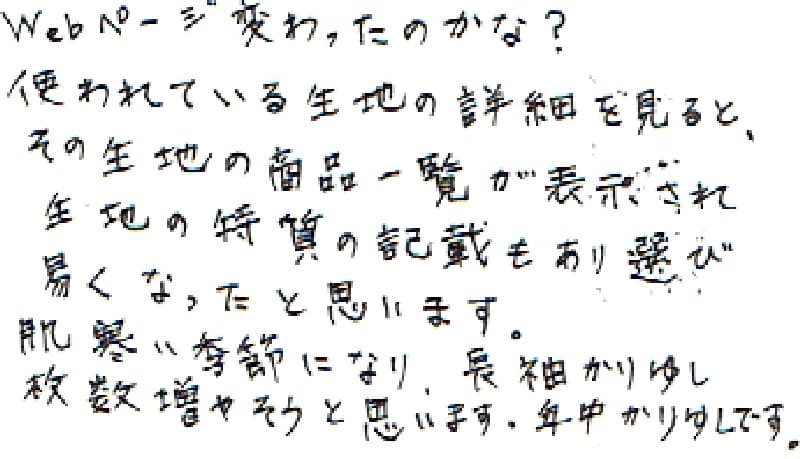 Webページ変わったのかな?
使われている生地の詳細を見ると、
その生地の商品一覧が表示され
生地の特質の記載もあり選び
易くなったと思います。
肌寒い季節になり、長袖かりゆし
枚数増やそうと思います。年中かりゆしです。